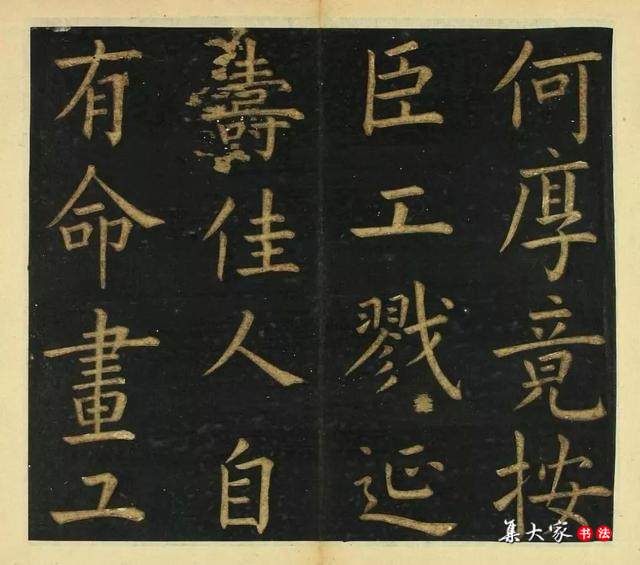 何厚竟按
臣工戮延
壽佳人自
有命畫工
集大家书法